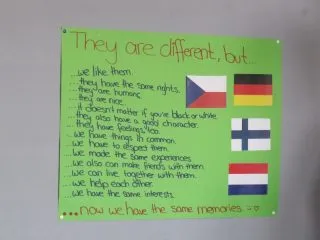 They are different, but...
...we like them.
...they have the same rights.
...they are human.
...they are nice.
...it doesn't matter if you're black or white.
...they also have a good character.
...they have feelings, too.
...we have things in common.
...we have to respect them.
...we made the same experiences.
...we also can make friends with them.
...we can live together with them.
...we help each other.
...we have the same interests.
...now we have the same memories.